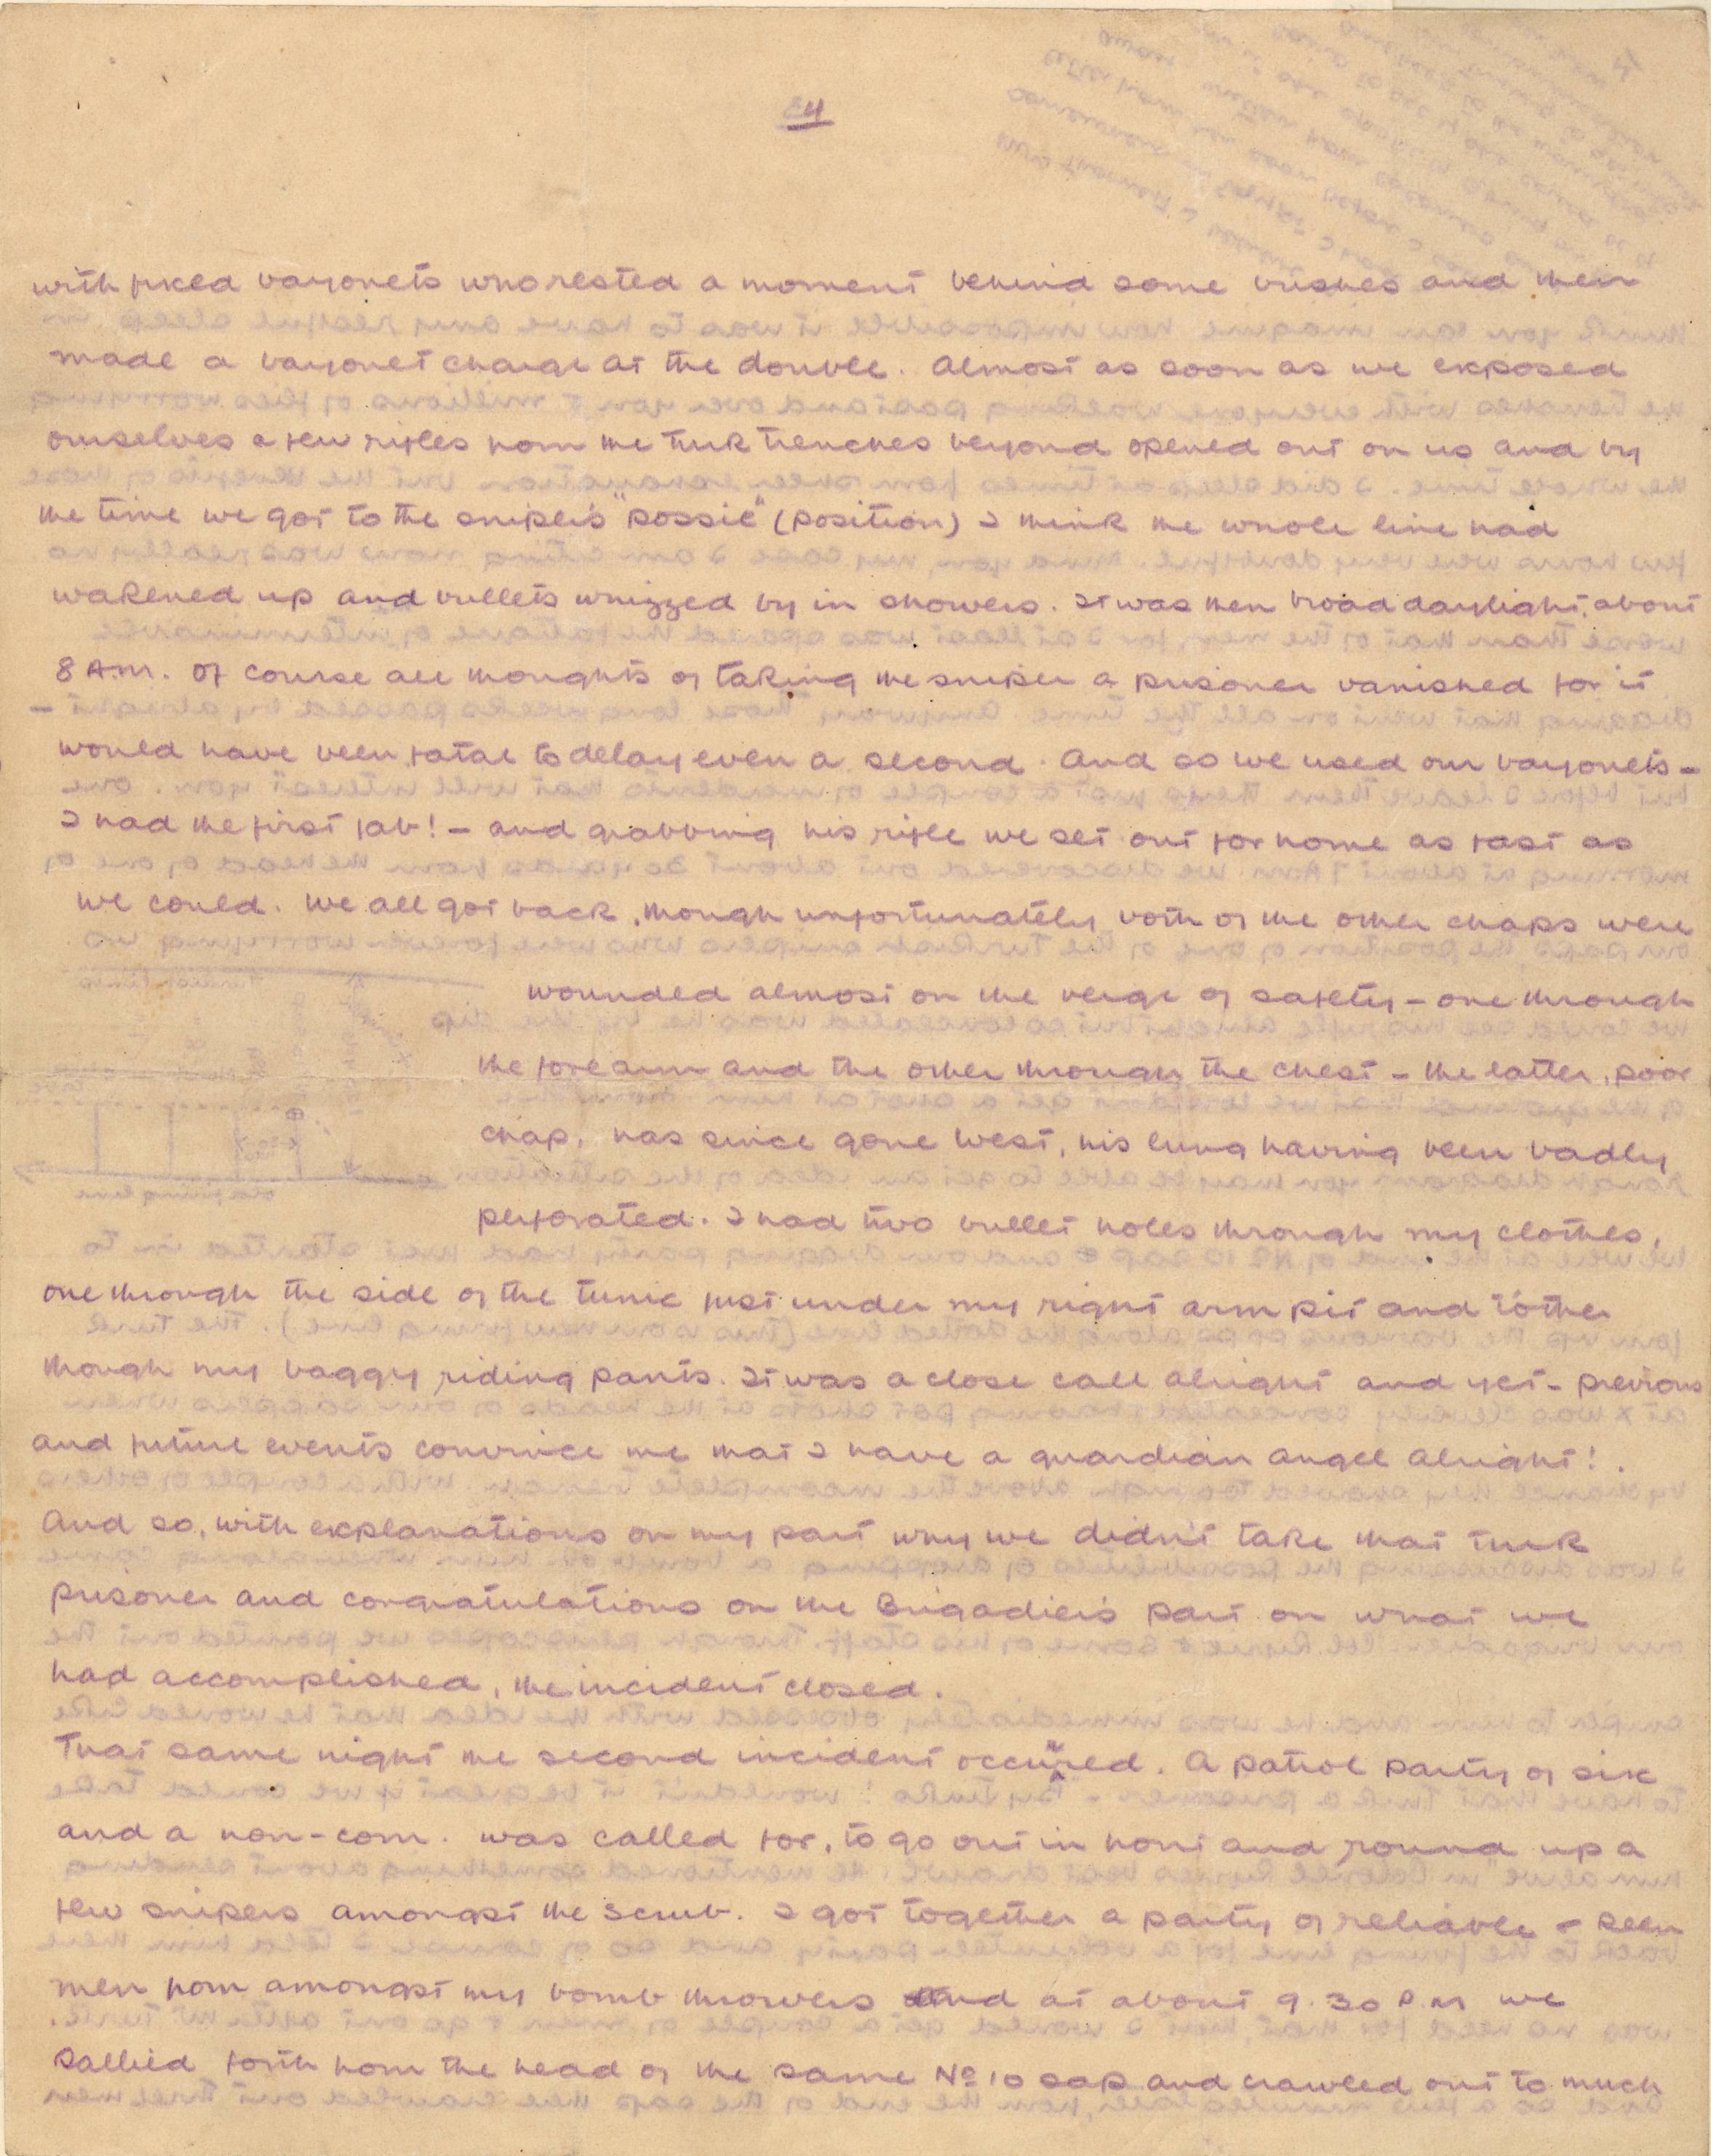 4
with fixed bayonets who rested a moment behind some bushes and then
made a bayonet charge at the double. Almost as soon as we exposed
ourselves a few rifles from the Turk trenches beyond opened out on us and by
the time we got to the sniper's "possie" (position) I think the whole line had
wakened up and bullets whizzed by in showers. It was then broad daylight, about
8 A.m. Of course all thoughts of taking the sniper a prisoner vanished for it
would have been fatal to delay even a second. And so we used our bayonets -
I had the first jab! - and grabbing his rifle we set out for home as fast as
we could. We all got back, though unfortunately both of the other chaps were
wounded almost on the verge of safety - one through
the forearm and the other through the chest - the latter, poor
chap, has since gone West, his lung having been badly
perforated. I had two bullet holes through my clothes,
one through the side of the tunic just under my right arm pit and t'other
though my baggy riding pants. It was a close call alright and yet - previous
and future events convince me that I have a guardian angel alright!
And so, with explanations on my part why we didn't take that Turk
prisoner and congratulations on the Brigadier's part on what we
had accomplished, the incident closed.
That same night the second incident occurred. A patrol party of six
and a non-com. was called for, to go out in front and round up a
few snipers amongst the scrub. I got together a party of reliable & keen
men from amongst my bomb throwers and at about 9.30 P.m we
sallied forth from the head of the same No 10 sap and crawled out to much